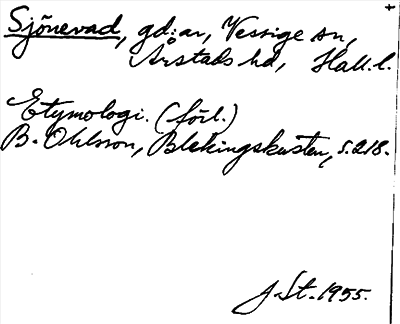 Sjönevad, gd:ar, Vessige sn,
Årstads hd, Hall. l.
Etymologi. (förl.)
B. Ohlsson, Blekingskusten, s. 218.
J. St. 1955.